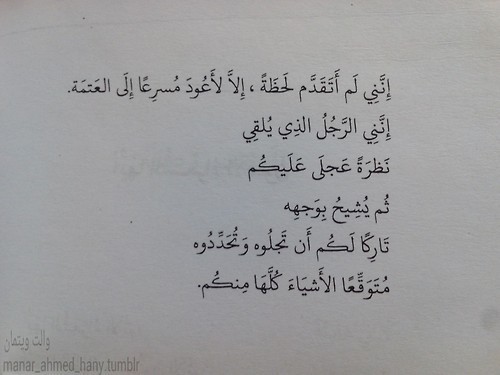 إِنَّنِي لَم أَتَقَدَّم لَحَظَةً ، إِلاَّ لأَعُودَ مُسرِعًا إِلَى العَتمَة.
إِنَّنِي الرَّجُلُ الذِي يُلقِي
نَظرَةً عَجلَى عَلَيكُم
ثُم يُشِيحُ بِوَجهِه
تَارِكًا لَكُم أَن تَجلُوه وَتُحَدِّدُوه
مُتَوَقِّعًا الأَشيَاءَ كُلَّهَا مِنكُم.
والت ويتمان
manar_ahmed_hany.tumblr